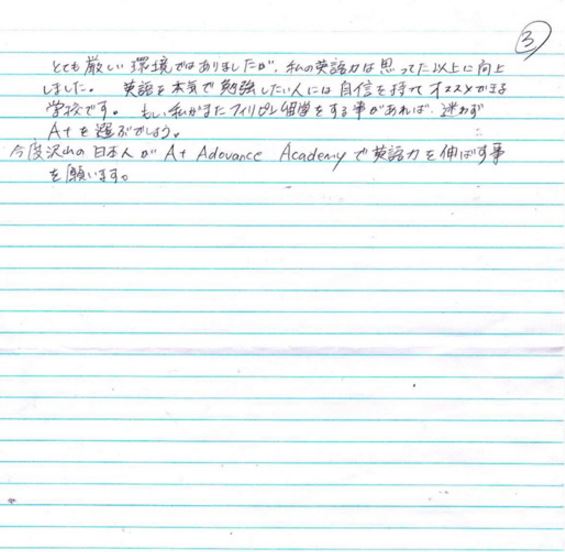 ③
とても厳しい環境ではありましたが、私の英語力は思ってた以上に向上
しました。 英語を本気で勉強したい人には自信を持ってオススメができる
学校です。 もし私がまたフィリピン留学をする事があれば、迷わず
A+を選ぶでしょう。
今度沢山の日本人がA+ Adovance Academyで英語力を伸ばす事
を願います。